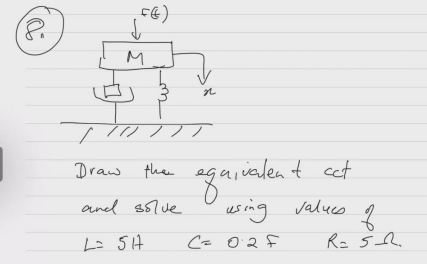 8.
F(t)
M
x
Draw the equivalent cct
and solve using values of
L= 5H C= 0.2F R= 5Ω